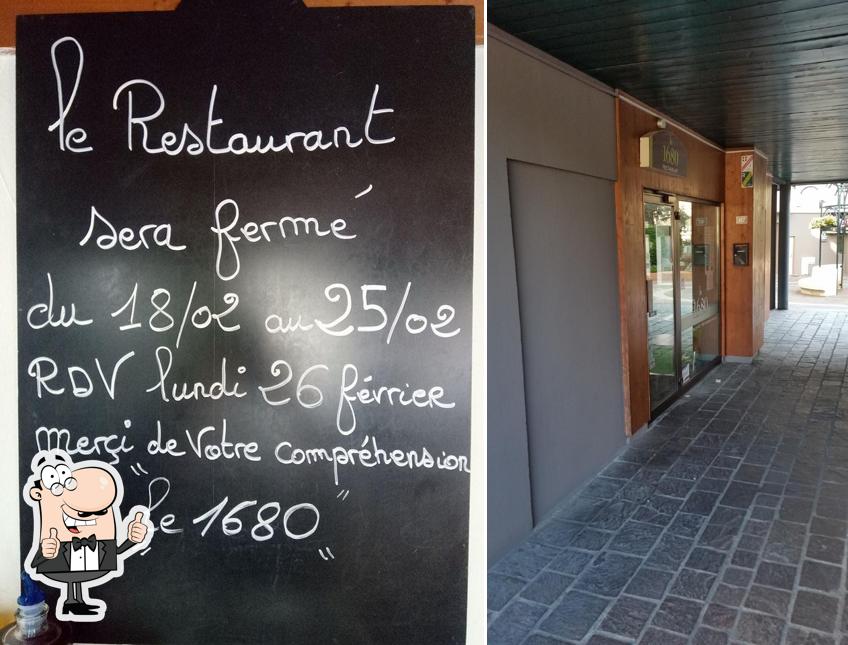 le Restaurant
sera fermé
du 18/02 au 25/02
RDV lundi 26 février
merçi de Votre compréhension
"le 1680"
1680
1680